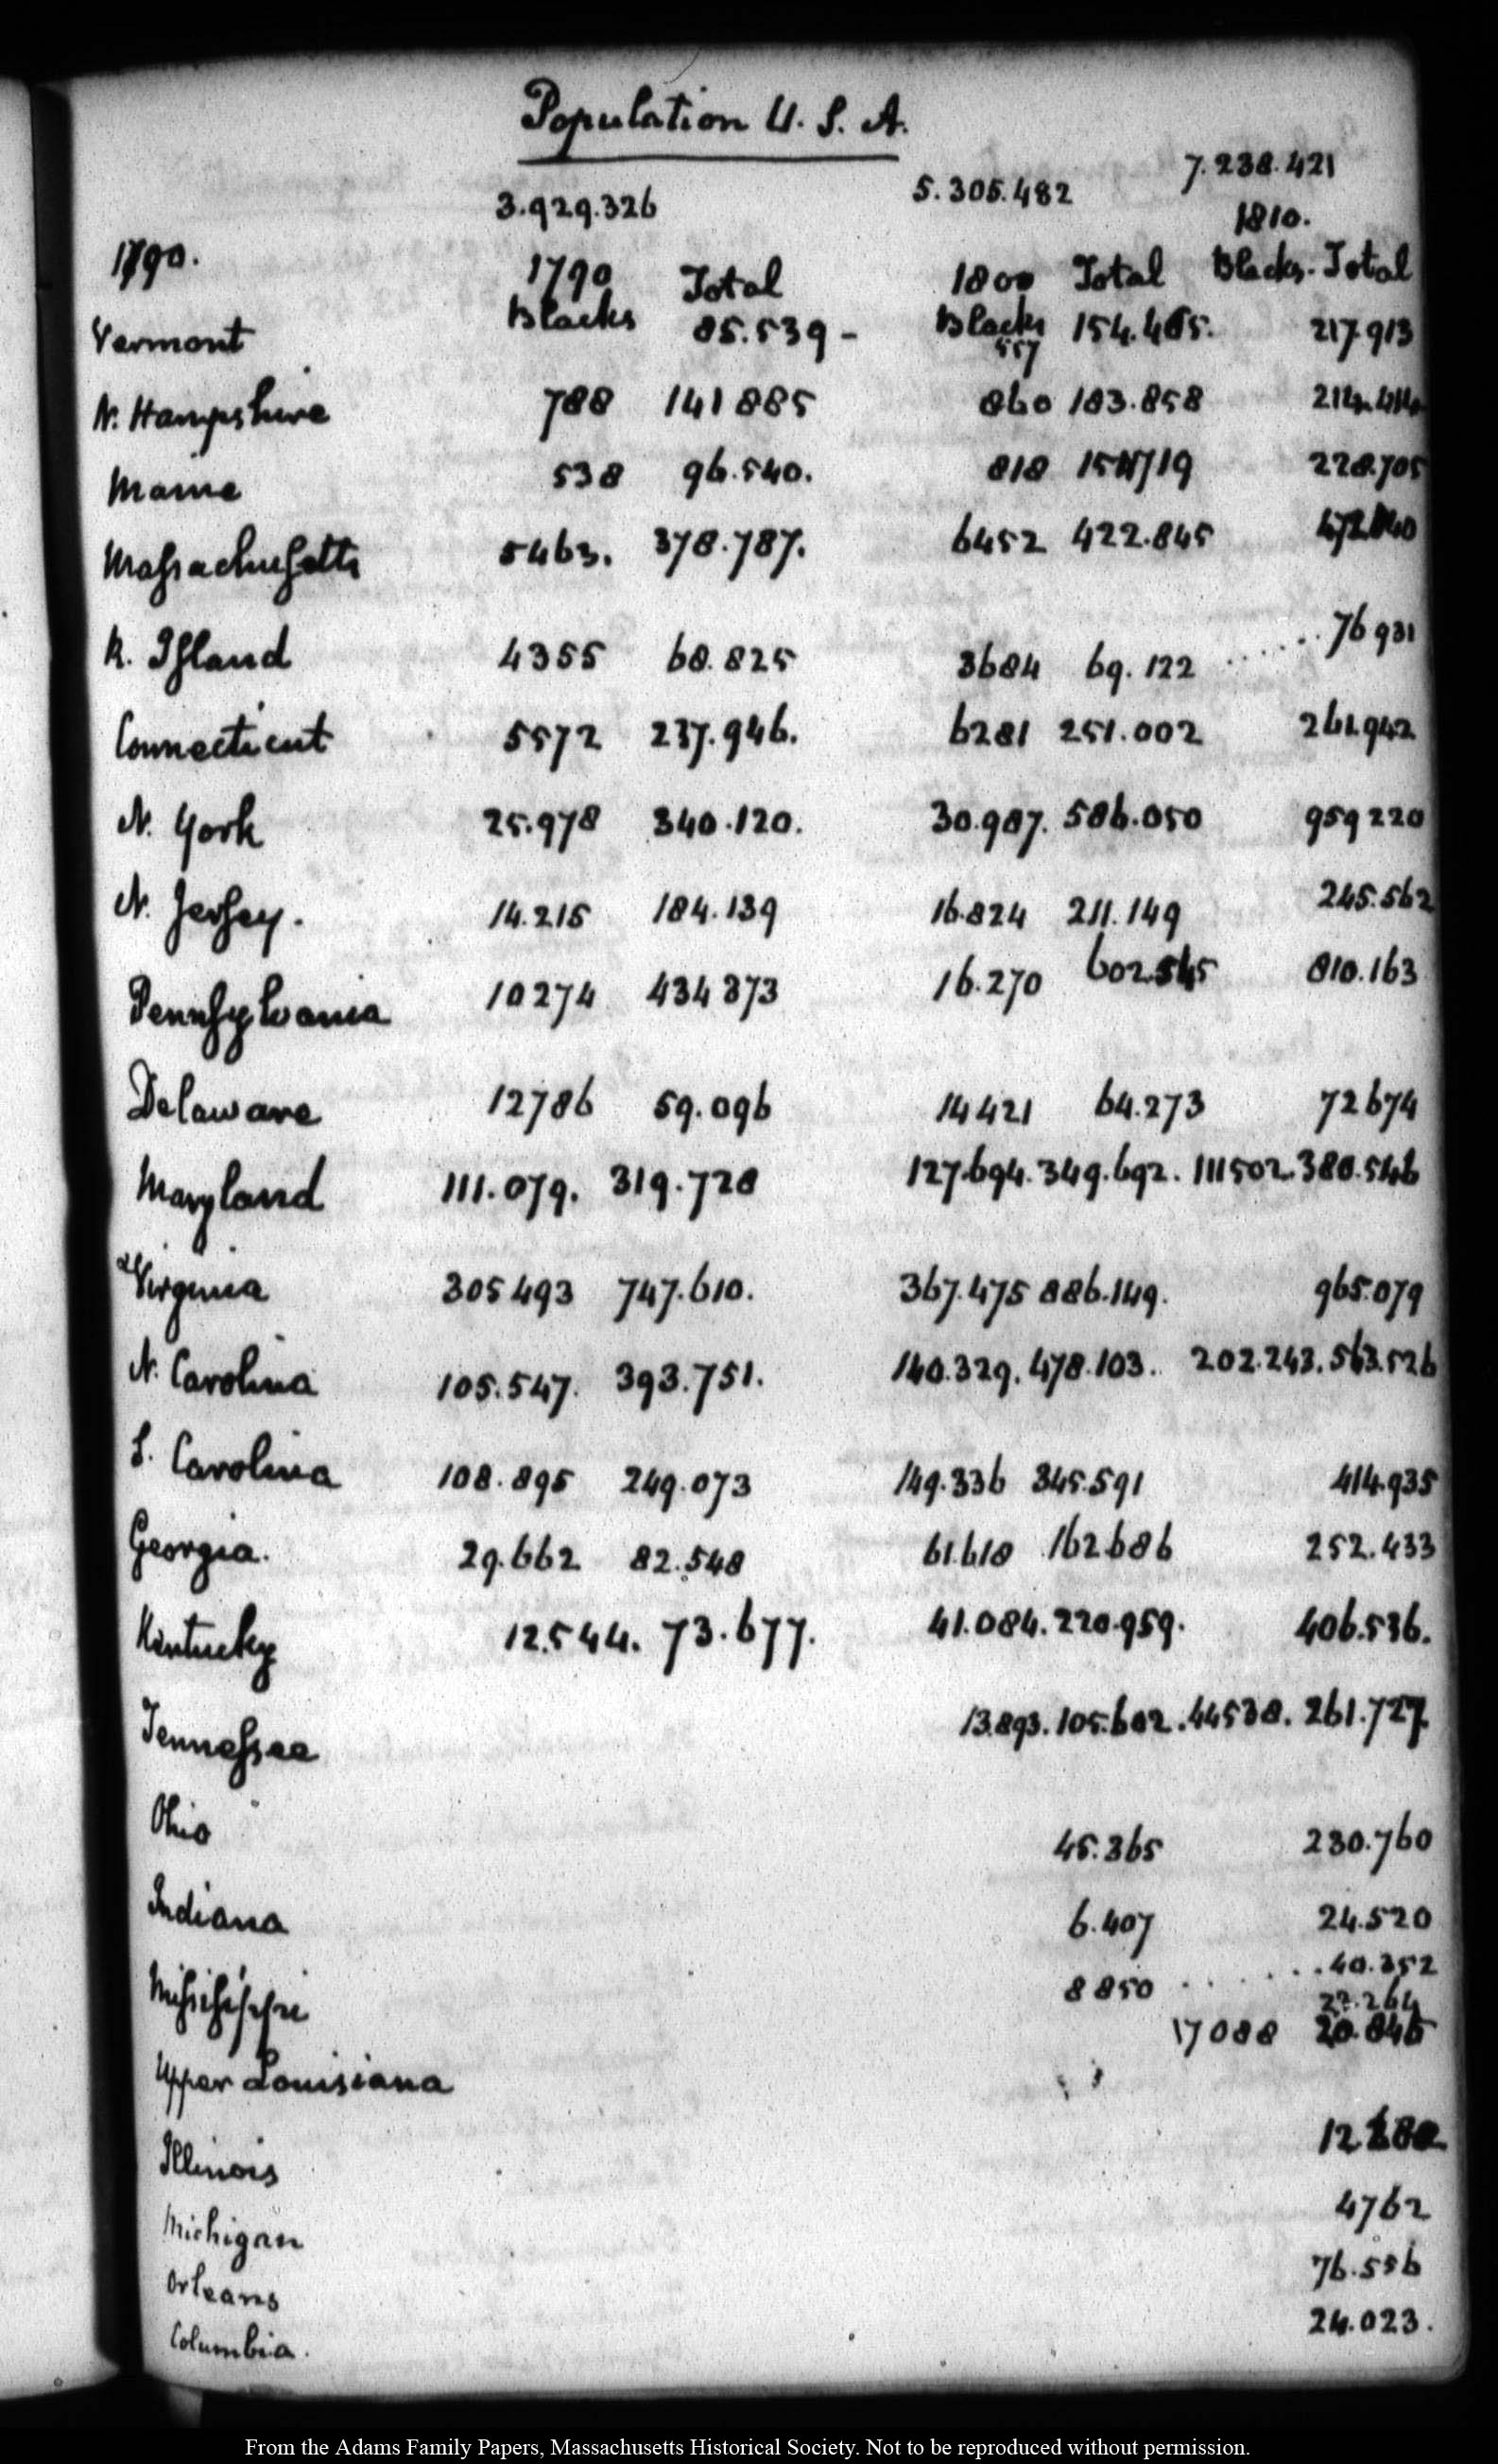 Population U. S. A.
3.929.326 5.305.482 7.238.421
1790. 1790 Total 1800 Total 1810.
Blacks Blacks Blacks. Total
Vermont 85.539 - 557 154.465. 217.913
N. Hampshire 788 141885 860 183.858 214.414
Maine 538 96.540. 818 719 228.705
Massachusetts 5463. 378.787. 6452 422.845
R. Island 4355 68.825 3684 69.122 ...... 76931
Connecticut 5572 237.946. 6281 251.002 261.942
N. York 25.978 340.120. 30.987. 586.050 959220
N. Jersey. 14.215 184.139 16.824 211.149 245.562
Pennsylvania 10274 434373 16.270 602.545 810.163
Delaware 12786 59.096 14421 64.273 72674
Maryland 111.079. 319.728 127.694. 349.692. 111502. 380.546
Virginia 305493 747.610. 367.475 886.149. 965.079
N. Carolina 105.547. 393.751. 140.329. 478.103. 202.243. 563.526
S. Carolina 108.895 249.073 149.336 345.591 414.935
Georgia. 29.662 82.548 61.618 162686 252.433
Kintucky 12.544. 73.677. 41.084. 220.959. 406.536.
Tennessee 13.893. 105.602. 44538. 261.727.
Ohio 45.365 230.760
Indiana 6.407 24.520
Missisippi 8850 ...... 40.352
22.264
Upper Louisiana 17088 20.845
Illinois
Michigan 4762
Orleans 76.556
Columbia. 24.023.
From the Adams Family Papers, Massachusetts Historical Society. Not to be reproduced without permission.